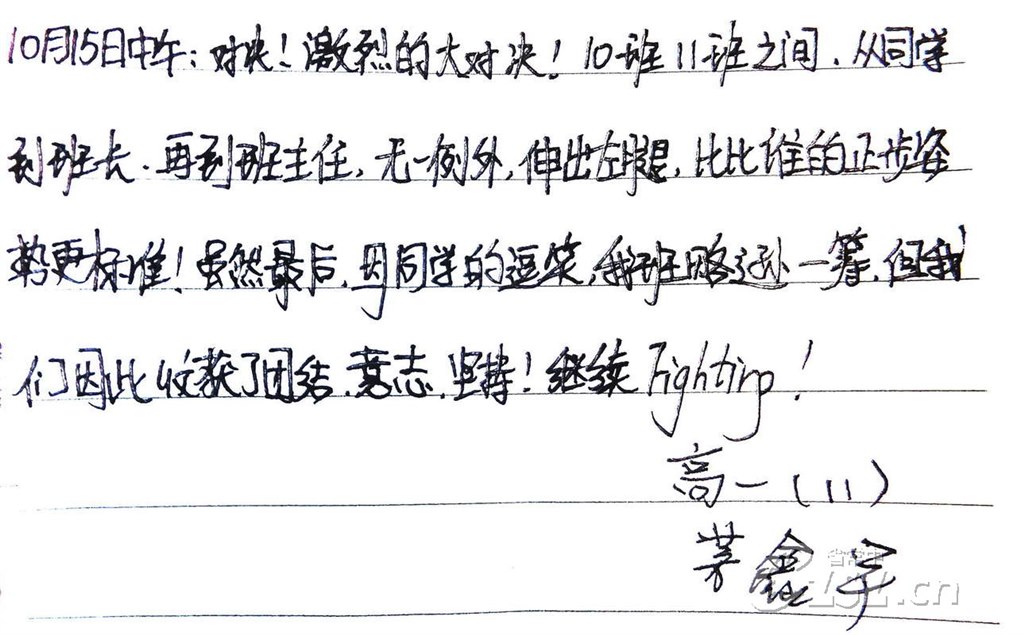 10月15日中午:对决!激烈的大对决!10班11班之间,从同学
到班长,再到班主任,无一例外,伸出左腿,比比谁的正步姿
势更标准!虽然最后,因同学的逗笑,我班略逊一筹,但我
们因此收获了团结、意志、坚持!继续Fighting!
高一(11)
茅鑫宇
省常中
.cn